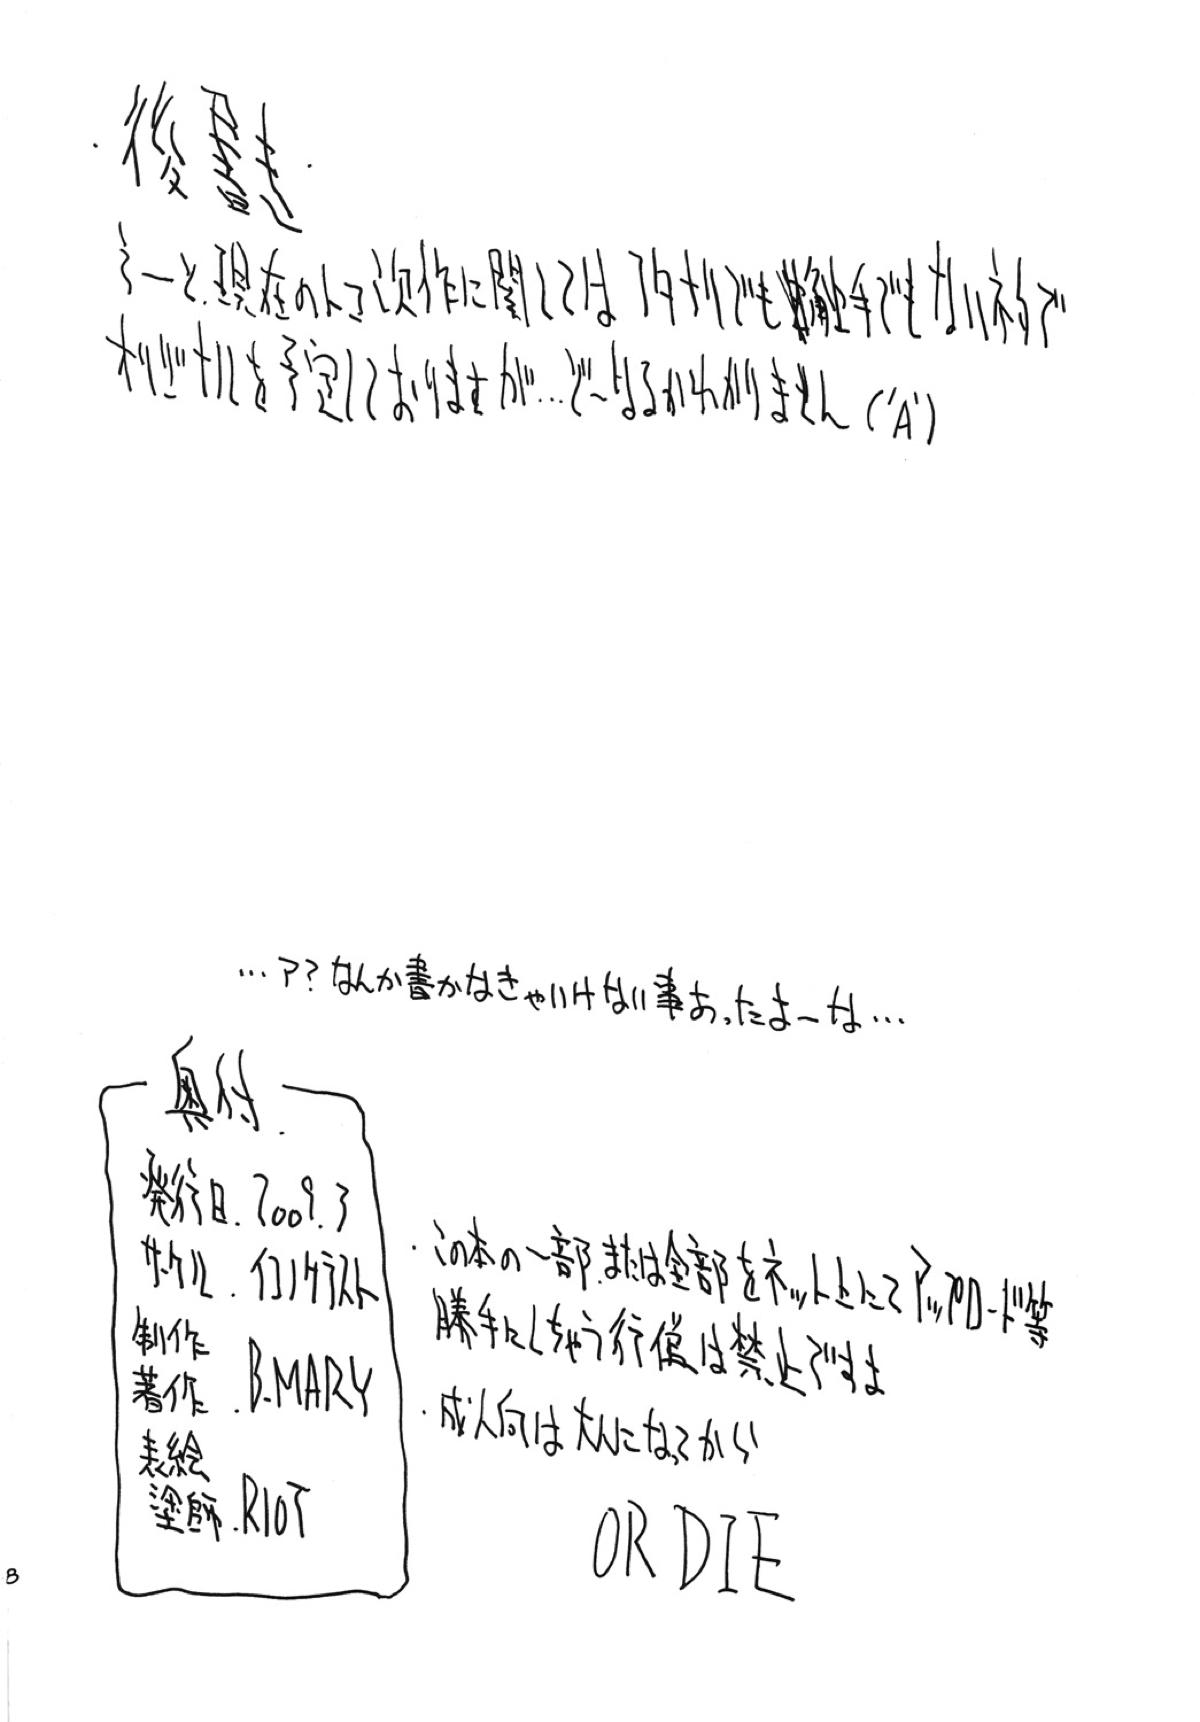 ・後書き・
うーと、現在のトコ次作に関してはフタナリでも触手でもないネタで
オリジナルを予定しておりますが…ど〜なるかわかりません('A`)
…ア?なんか書かなきゃいけない事あったよ〜な…
奥付.
発行日.2009.3
サークル.イコノクラスト
制作
著作.B.MARY
表絵
塗師.RIOT
・この本の一部、または全部をネット上にてアップロード等
勝手にしちゃう行為は禁止ですよ
・成人向は大人になってから
OR DIE
8